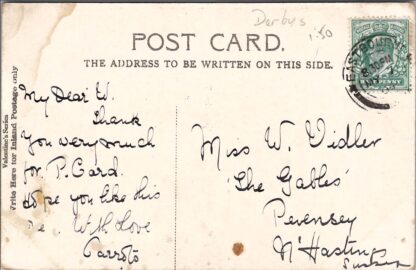 Derbys
1.50
POST CARD.
THE ADDRESS TO BE WRITTEN ON THIS SIDE.
EASTBOURNE
Valentine's Series
Write Here for Inland Postage only
My Dear W.
Thank
you very much
for P. Card.
Hope you like this
With Love
Miss W. Vidler
'The Gables'
Pevensey
Nr Hastings
Sussex